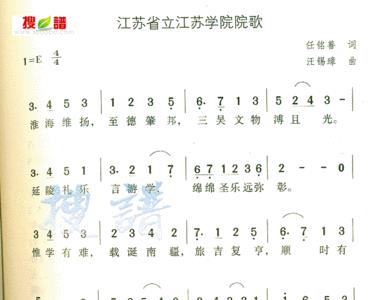 搜谱
江苏省立江苏学院院歌
任铭善 词
1=E 4/4
汪锡璋 曲
3. 4 5 3 | 1 2 3 5 | 6. 7 1 3 | 5 2 4 3 - |
淮海维扬，至德肇邦，三吴文物溥且光。
3. 4 5 3 3. 2 1 7 1 | 6 7 6 1 2 3 6 | 2 - - 0 |
延陵礼乐言游学，绵绵圣乐远弥彰。
搜谱
3. 4 5 3 | 1. 2 3 5 | 7. 6 1 2 | 5. 4 3 2 |
惟学有难，载诞南疆，旅吉复亨，顺时有